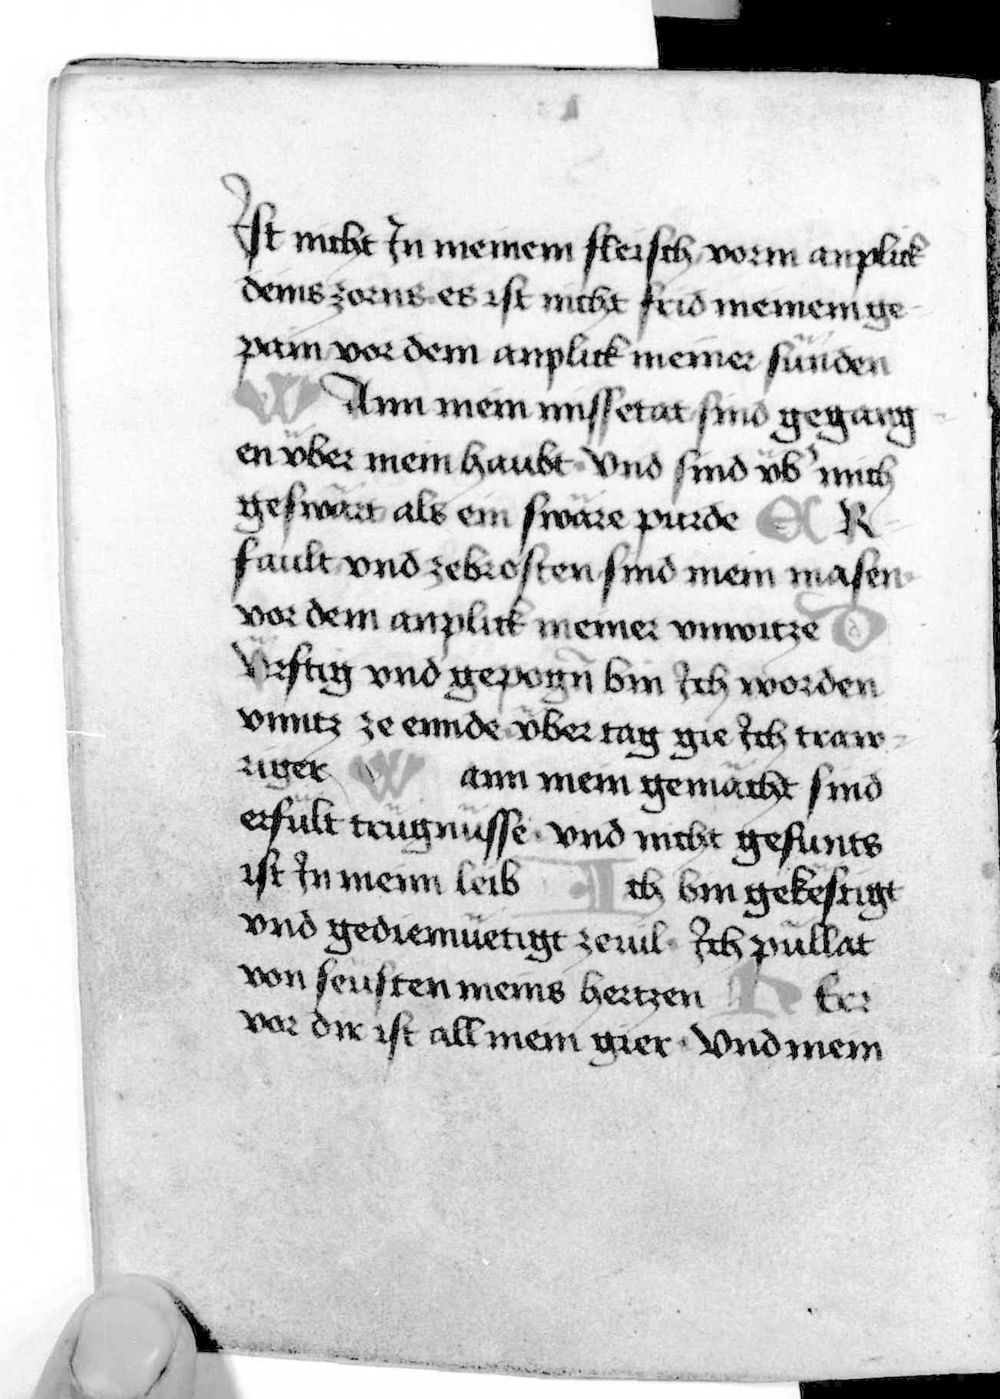 Ist nicht In meinem fleisch vorm anplick
deins zorns es ist nicht frid meinem ge-
pain vor dem anplick meiner sünden
WAnn mein missetat sind gegang-
en über mein haubt · Vnd sind üb' mich
geswärt als ein swäre purde ER-
fault vnd zebrosten sind mein masen
vor dem anplick meiner vnwitze D
Vrftig vnd gepogn̄ bin Ich worden
vnntz ze ennde über tag gie Ich traw-
riger Wann mein gemächt sind
erfült trügnüsse · vnd nicht gesunts
ist In meim leib Ich bin gekestigt
vnd gediemüetigt ze vil · Ich püllat
von seüften meins hertzen Her
vor dir ist all mein gier · Vnd mein